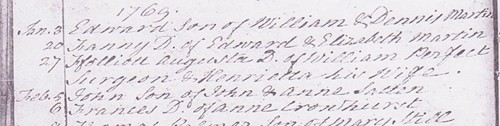 1769.
Jan. 3 Edward Son of William & Dennis Martin
20 Fanny D. of Edward & Elizabeth Martin
27 Augusta D. of William Perfect
Surgeon & Henrietta his Wife.
Feb. 5 John Son of John & Anne
6 Frances D. of Anne Crowhurst
Thomas Son of Mary